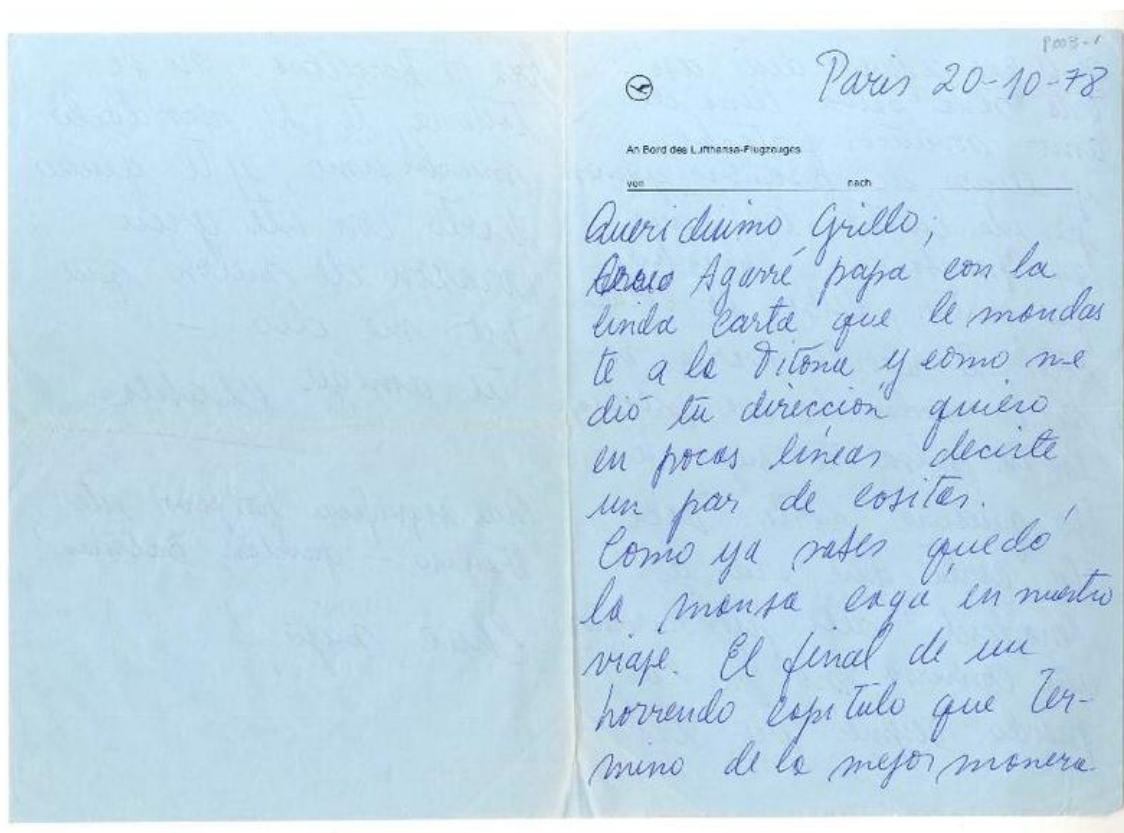 P003-1
Paris 20-10-78
An Bord des Lufthansa-Flugzeuges
von nach
Queridisimo Grillo;
Agarré papa con la
linda carta que le mandas
te a la Titona y como me
dió tu dirección quiero
en pocas lineas decirte
un par de cositas.
Como ya sabes quedó
la mansa cagá en nuestro
viaje. El final de un
horrendo capitulo que ter-
mino de la mejor manera